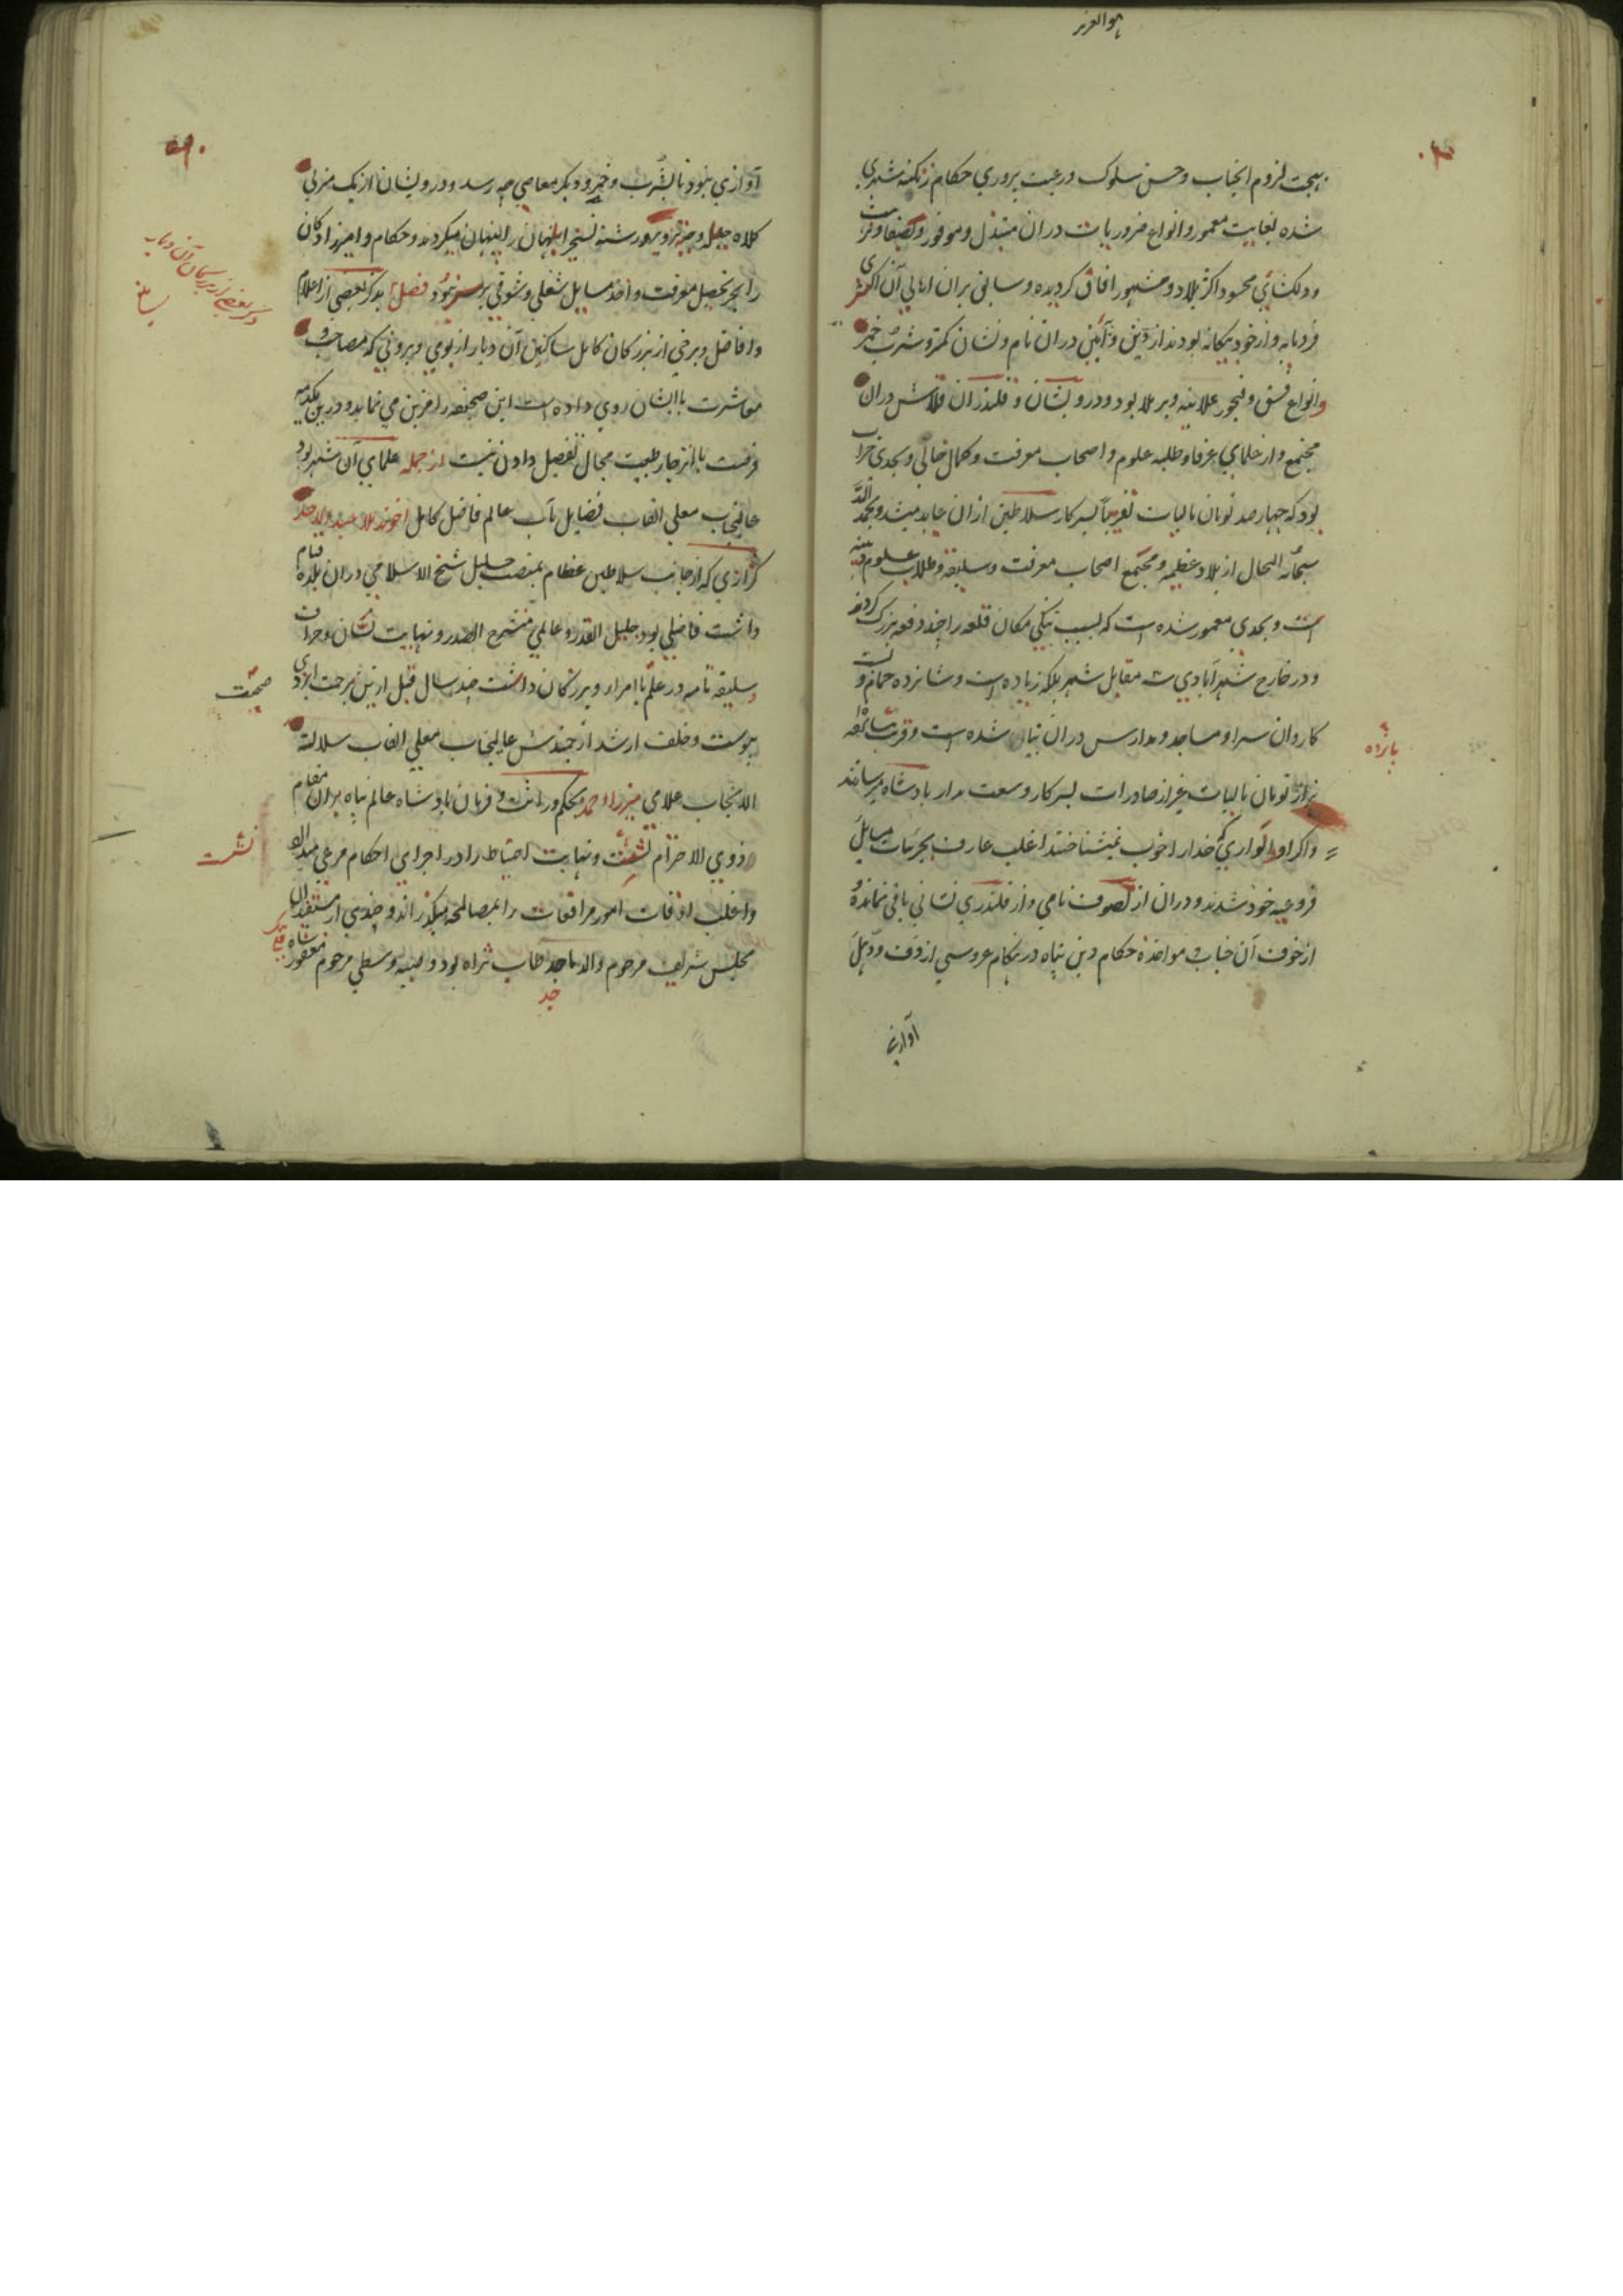 هو العزیز
بهجت لزوم انجناب و حسن سلوک و رعیت پروری حکام زنکنه شهری
شده بغایت معمور و انواع ضروریات دران مبتذل و موفور و بصفا و نزهت
و دلکشایی محسود اکثر بلاد و مشهور افاق کردیده و سابق بران اهالی آن اکثری
فرومایه و از خود بیکانه بودند از دین و آیین دران نام و نشان کمتر و شرب خمر
و انواع فسق و فجور علانیه و برملا بود و درویشان و قلندران قلاش دران
مجتمع و از علمای عرفا و طلبه علوم و اصحاب معرفت و کمال خالی و بحدی خراب
بود که چهارصد تومان مالیات تقریباً بسرکار سلاطین ازان عاید میشد و بحمد الله
سبحانه الحال از بلاد عظیمه و مجتمع اصحاب معرفت و سلیقه و طلاب علوم دینیه
است و بحدی معمور شده است که بسبب تنکی مکان قلعه را چند دفعه بزرک کردند
و در خارج شهر آبادی مقابل شهر بلکه زیاده است و شانزده حمام و
کاروان سرا و مساجد و مدارس دران بنیان شده است و قریب
هزار تومان مالیات غیر از صادرات بسرکار وسعت مدار پادشاه میرسانند
و اکر او را خدا را خوب نمیشناختند اغلب عارف بجزئیات مسایل
فروعیه خود شدند و دران از تصوف نامی و از قلندری نشانی باقی نمانده و
از خوف آن جناب و مواخذه حکام دین پناه در هنکام عروسی از دف و دهل
آوازی
پانزده
آوازی نبود تا بشرب و خمر و دیکر معاصی چه رسد و درویشان از یک منزلی
کلاه حیله و جبه تزویر و رشته تسخیر ابلهان را پنهان میکردند و حکام و امیرزادکان
را بجز تحصیل معرفت و اخذ مسایل شغلی و شوقی نبود فصل بذکر بعضی از اعلام
و افاضل و برخی از بزرکان کامل ساکنین آن دیار از بومی و بیرونی که مصاحبت و
معاشرت با ایشان روی داده است این صحیفه را مزین می نماید و درین
فرصت با انزجار طبیعت مجال تفصیل دادن نیست از جمله علمای آن شهر بود
عالیجناب معلی القاب فضایل مآب عالم فاضل کامل اخوند ملا
کزازی که از جانب سلاطین عظام بمنصب جلیل شیخ الاسلامی دران بلده قیام
داشت فاضلی بود جلیل القدر و عالمی منشرح الصدر و نهایت لسان و جراءت
و سلیقه تامه در تکلم با امرا و بزرکان داشت چند سال قبل ازین برحمت ایزدی
پیوست و خلف ارشد ارجمندش عالیجناب معلی القاب سلالة
الانجاب علامی میرزا احمد بحکم وراثت و فرمان پادشاه عالم پناه بران مقام
ذوی الاحترام نشست و نهایت احتیاط را در اجرای احکام مرعی میدارد
و اغلب اوقات امور مرافعات را بمصالحه میکذراند و چندی از مستفیدان
مجلس شریف مرحوم والد ماجد طاب ثراه بود و صبیه وسطی مرحوم مغفور
ذکر بعضی از بزرکان آن دیار
نشست
جد